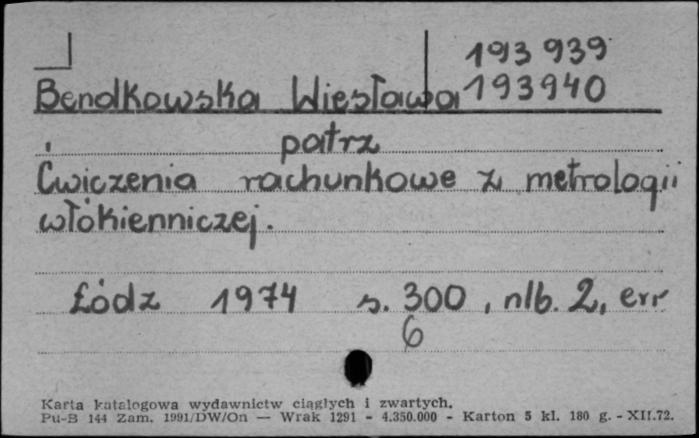 193 939
Bendkowska Wiesława 193940
patrz
Ćwiczenia rachunkowe z metrologii
włókienniczej.
Łódz 1974 s. 300, nlb. 2, err
6
Karta katalogowa wydawnictw ciągłych i zwartych.
Pu-B 144 Zam. 1991/DW/On — Wrak 1291 - 4.350.000 - Karton 5 kl. 180 g. - XII.72.